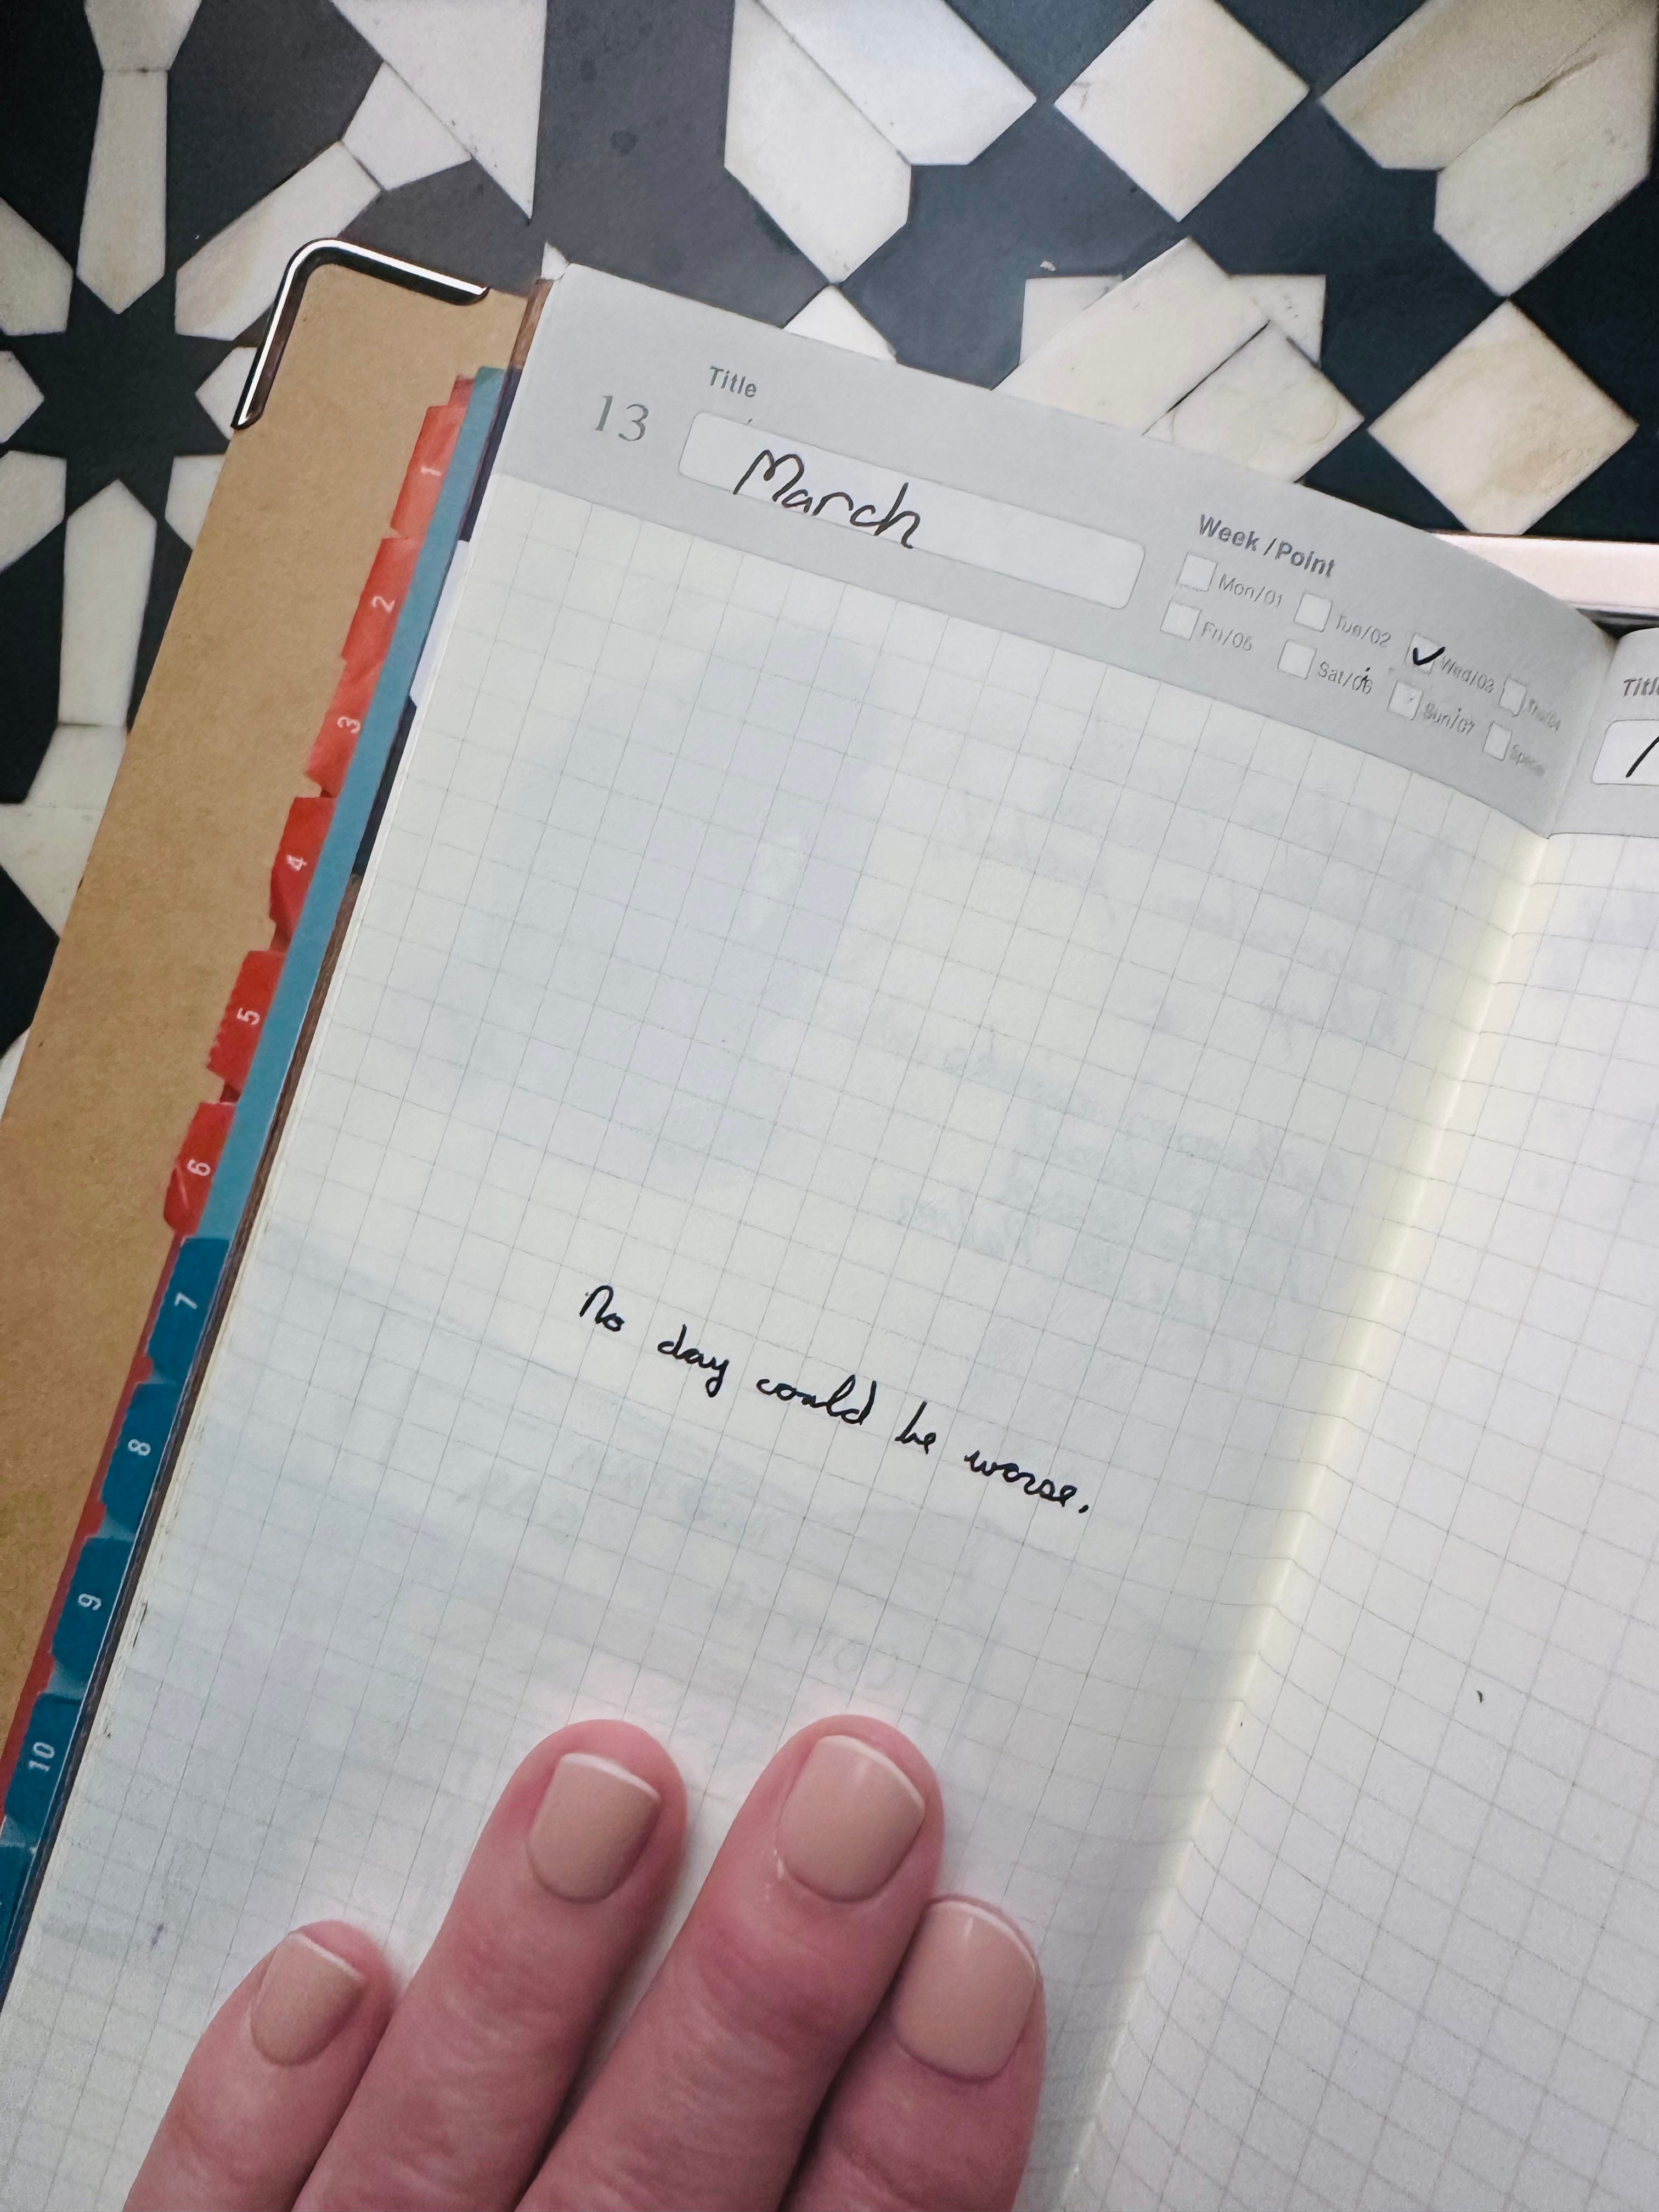 Title
13
March
Week/Point
Mon/01 Tue/02 Wed/03 Thu/04
Fri/05 Sat/06 Sun/07 Special
No day could be worse.
1
2
3
4
5
6
7
8
9
10